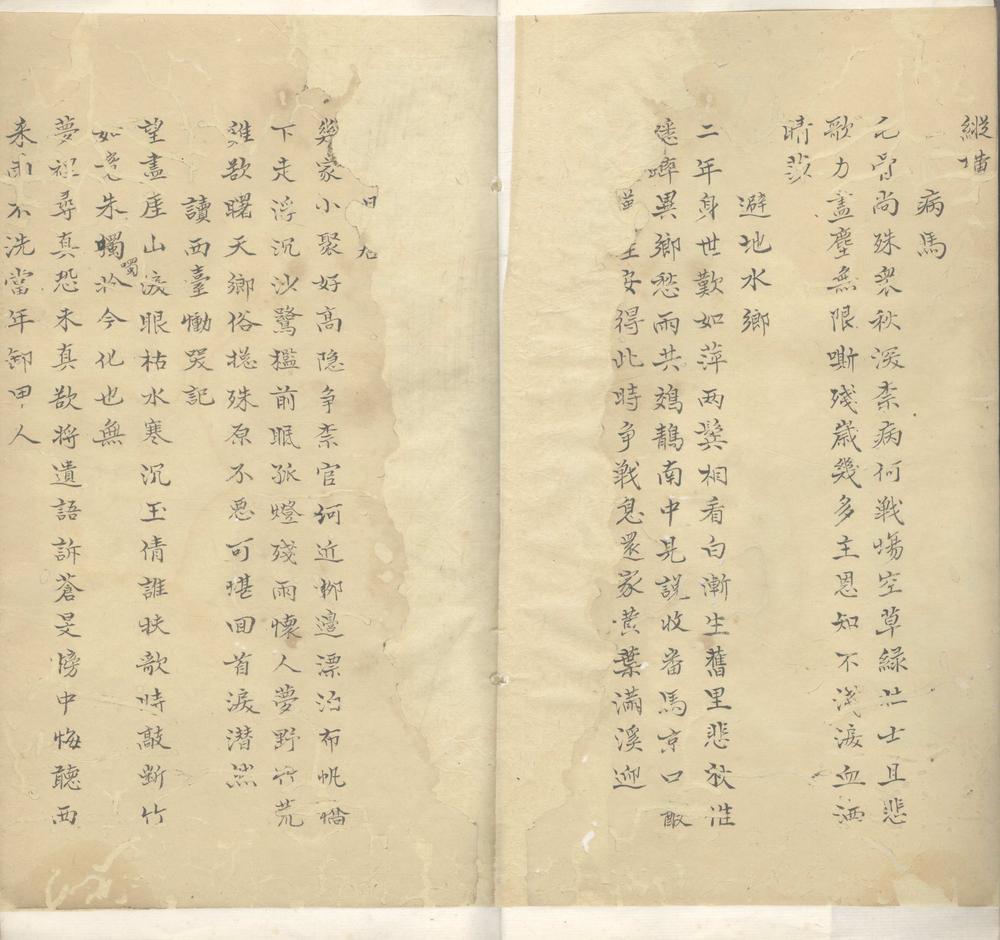 縱橫
病馬
毛骨尚殊衆秋深柰病何戰場空草綠壯士且悲
歌力盡塵無限嘶殘歲幾多主恩知不淺淚血洒
晴莎
避地水鄉
二年身世歎如萍兩鬢相看白漸生舊里悲秋淮
蟋蟀異鄉愁雨共鵁鶄南中見說收番馬京口
安得此時爭戰息還家黃葉滿溪迎
日
幾家小聚好高隐爭柰官河近郭邊漂泊布帆檣
下走浮沉沙鷺檻前眠孤燈殘雨懷人夢野竹荒
雞欲曙天鄉俗捴殊原不惡可堪回首淚潸然
讀西臺慟哭記
望盡厓山淚眼枯水寒沉玉倩誰扶歌時敲斷竹
如意朱噣於今化也無
噣
夢裡尋真恐未真欲將遺語訴蒼旻傍中悔聽西
来雨不洗當年卸甲人